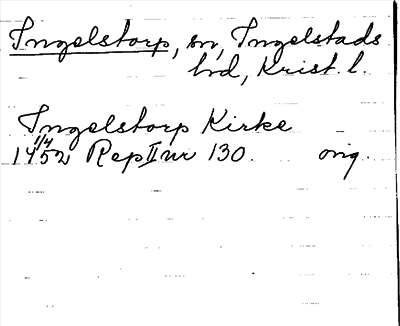 Ingelstorp, sn, Ingelstads
hrd, Krist. l.
Ingelstorp Kirke
1452 1/4 Rep II nr 130. orig.